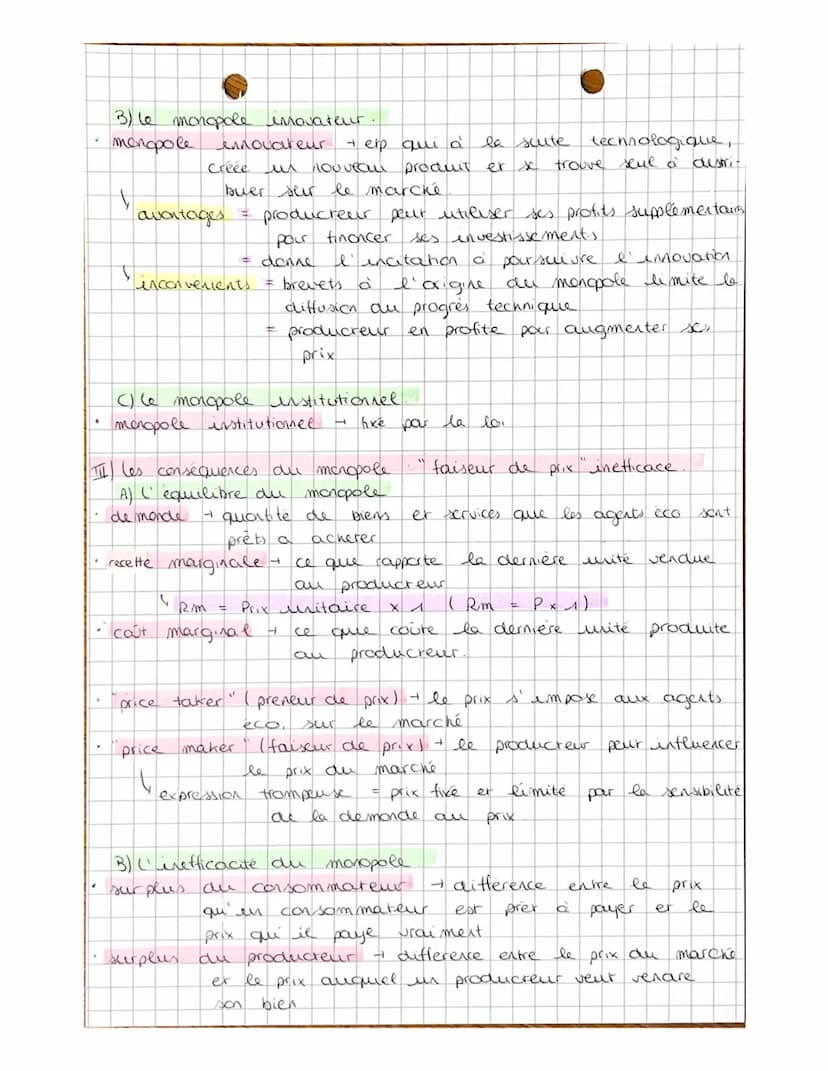 B) Le monopole innovateur.
• monopole innovateur → etp qui à la suite technologique,
créée un nouveau produit et se trouve seul à distri-
buer sur le marché
↳ avantages = producteur peut utiliser ses profits supplémentaires
pour financer ses investissements
= donne l'incitation à poursuivre l'innovation
↳ inconvénients = brevets à l'origine du monopole limite la
diffusion du progrès technique
= producteur en profite pour augmenter ses
prix
C) Le monopole institutionnel
• monopole institutionnel → fixé par la loi
III) Les conséquences du monopole : "faiseur de prix" inefficace.
A) L'équilibre du monopole
• demande → quantité de biens et services que les agents éco sont
prêts à acheter
• recette marginale → ce que rapporte la dernière unité vendue
au producteur
↳ Rm = Prix unitaire x 1 (Rm = P x 1)
• coût marginal → ce que coûte la dernière unité produite
au producteur.
• "price taker" (preneur de prix) → le prix s'impose aux agents
éco. sur le marché
• "price maker" (faiseur de prix) → le producteur peut influencer
le prix du marché
↳ expression trompeuse = prix fixé et limité par la sensibilité
de la demande au prix
B) L'inefficacité du monopole
• surplus du consommateur → différence entre le prix
qu'un consommateur est prêt à payer et le
prix qu'il paye vraiment
• surplus du producteur → différence entre le prix du marché
et le prix auquel un producteur veut vendre
son bien